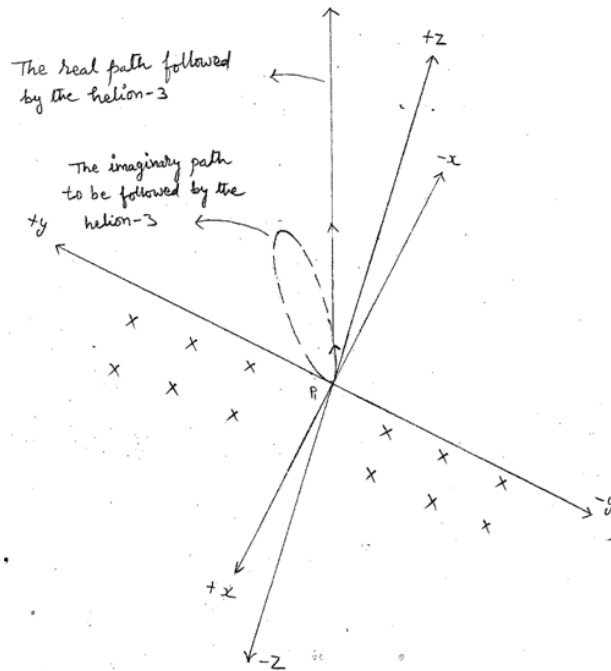 The real path followed
by the helion-3
+z
-x
The imaginary path
to be followed by the
helion-3
+y
x x x
x x x
P₁
x x x
x x x
-y
+x
-z